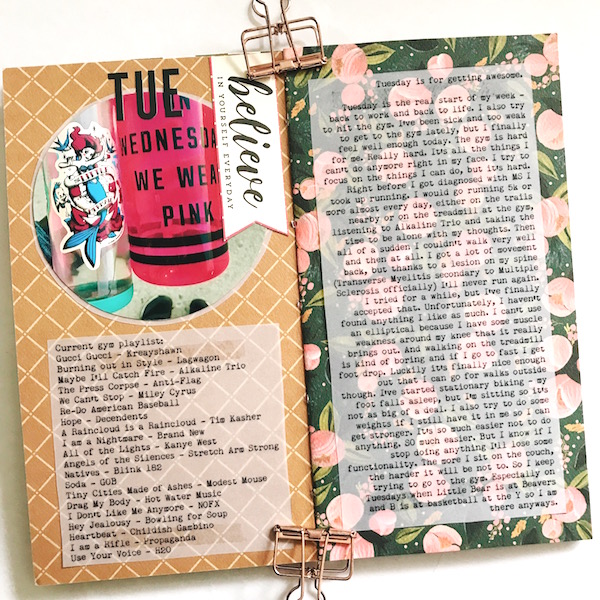 TUE
believe
IN YOURSELF EVERYDAY
IN
WEDNESDA
WE WEA
PINK
Current gym playlist:
Gucci Gucci - Kreayshawn
Burning out in Style - Lagwagon
Maybe I'll Catch Fire - Alkaline Trio
The Press Corpse - Anti-Flag
We Can't Stop - Miley Cyrus
Re-Do American Baseball
Hope - Decendents
A Raincloud is a Raincloud - Tim Kasher
I am a Nightmare - Brand New
All of the Lights - Kanye West
Angels of the Silences - Stretch Arm Strong
Natives - Blink 182
Soda - GOB
Tiny Cities Made of Ashes - Modest Mouse
Drag My Body - Hot Water Music
I Don't Like Me Anymore - NOFX
Hey Jealousy - Bowling for Soup
Heartbeat - Childish Gambino
I am a Rifle - Propaganda
Use Your Voice - H2O
Tuesday is for getting awesome.
Tuesday is the real start of my week -
back to work and back to life. I also try
to hit the gym. I've been sick and too weak
to get to the gym lately, but I finally
feel well enough today. The gym is hard
for me. Really hard. It's all the things I
can't do anymore right in my face. I try to
focus on the things I can do, but it's hard.
Right before I got diagnosed with MS I
took up running. I would go running 5k or
more almost every day, either on the trails
nearby or on the treadmill at the gym,
listening to Alkaline Trio and taking the
time to be alone with my thoughts. Then
all of a sudden I couldn't walk very well
and then at all. I got a lot of movement
back, but thanks to a lesion on my spine
(Transverse Myelitis secondary to Multiple
Sclerosis officially) I'll never run again.
I tried for a while, but I've finally
accepted that. Unfortunately, I haven't
found anything I like as much. I can't use
an elliptical because I have some muscle
weakness around my knee that it really
brings out. And walking on the treadmill
is kind of boring and if I go to fast I get
foot drop. Luckily it's finally nice enough
out that I can go for walks outside
though. I've started stationary biking - my
foot falls asleep, but I'm sitting so it's
not as big of a deal. I also try to do some
weights if I still have it in me so I can
get stronger. It's so much easier not to do
anything. SO much easier. But I know if I
stop doing anything I'll lose some
functionality. The more I sit on the couch
the harder it will be not to. So I keep
trying to go to the gym. Especially on
Tuesdays when Little Bear is at Beavers
and B is at basketball at the Y so I am
there anyways.